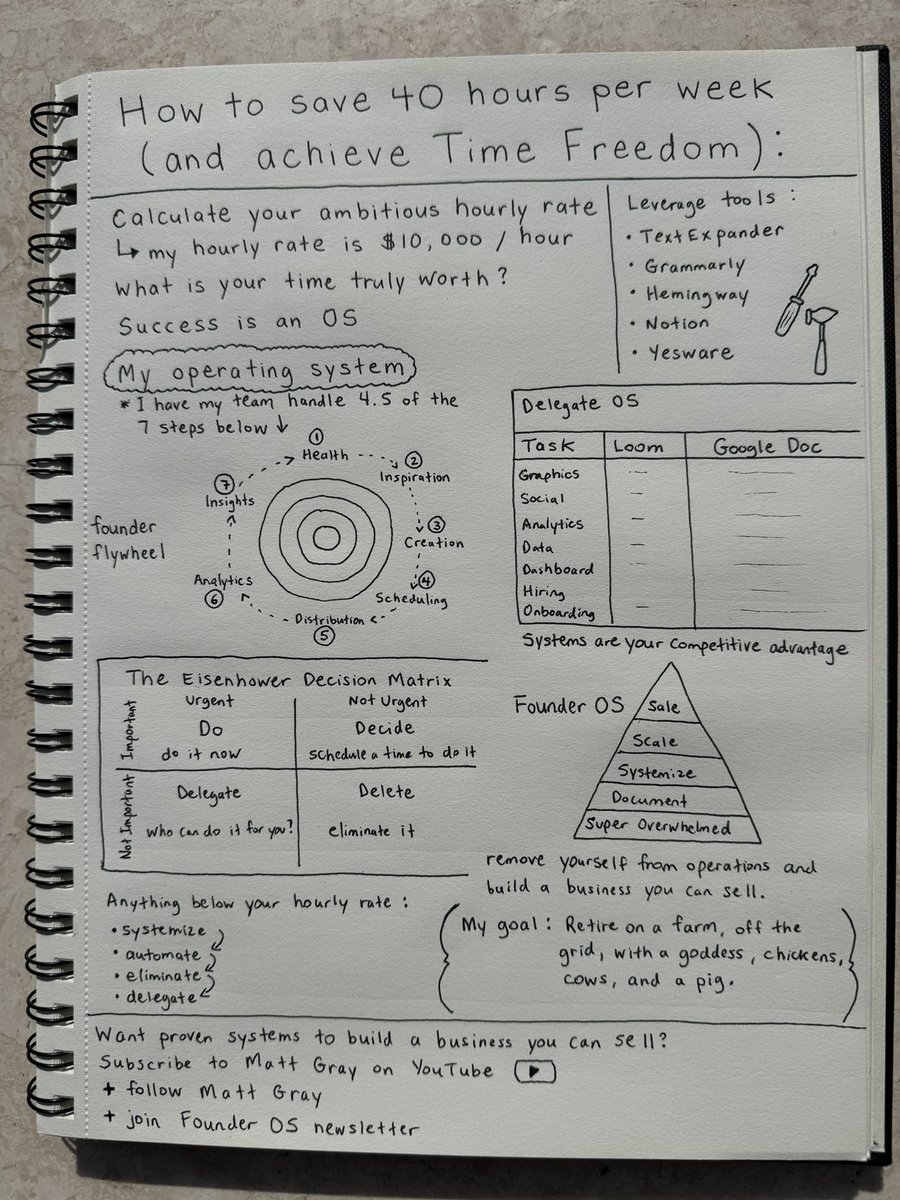 How to save 40 hours per week
(and achieve Time Freedom):
Calculate your ambitious hourly rate
↳ my hourly rate is $10,000 / hour
what is your time truly worth?
Success is an OS
Leverage tools:
• TextExpander
• Grammarly
• Hemingway
• Notion
• Yesware
My operating system
* I have my team handle 4.5 of the
7 steps below ↓
founder
flywheel
① Health
② Inspiration
③ Creation
④ Scheduling
Distribution ⑤
Analytics ⑥
⑦ Insights
Delegate OS
Task Loom Google Doc
Graphics
Social
Analytics
Data
Dashboard
Hiring
Onboarding
Systems are your competitive advantage
The Eisenhower Decision Matrix
Urgent Not Urgent
Important
Do Decide
do it now schedule a time to do it
Not Important
Delegate Delete
who can do it for you? eliminate it
Founder OS
Sale
Scale
Systemize
Document
Super Overwhelmed
remove yourself from operations and
build a business you can sell.
Anything below your hourly rate:
• systemize
• automate
• eliminate
• delegate
My goal: Retire on a farm, off the
grid, with a goddess, chickens,
cows, and a pig.
Want proven systems to build a business you can sell?
Subscribe to Matt Gray on YouTube
+ follow Matt Gray
+ join Founder OS newsletter